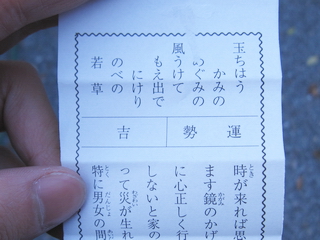 玉ちはう
かみの
めぐみの
風うけて
もえ出で
にけり
のべの
若草
運勢
吉
時が来れば思
ます鏡のかげ
に心正しく行
しないと家の
って災が生れ
特に男女の間